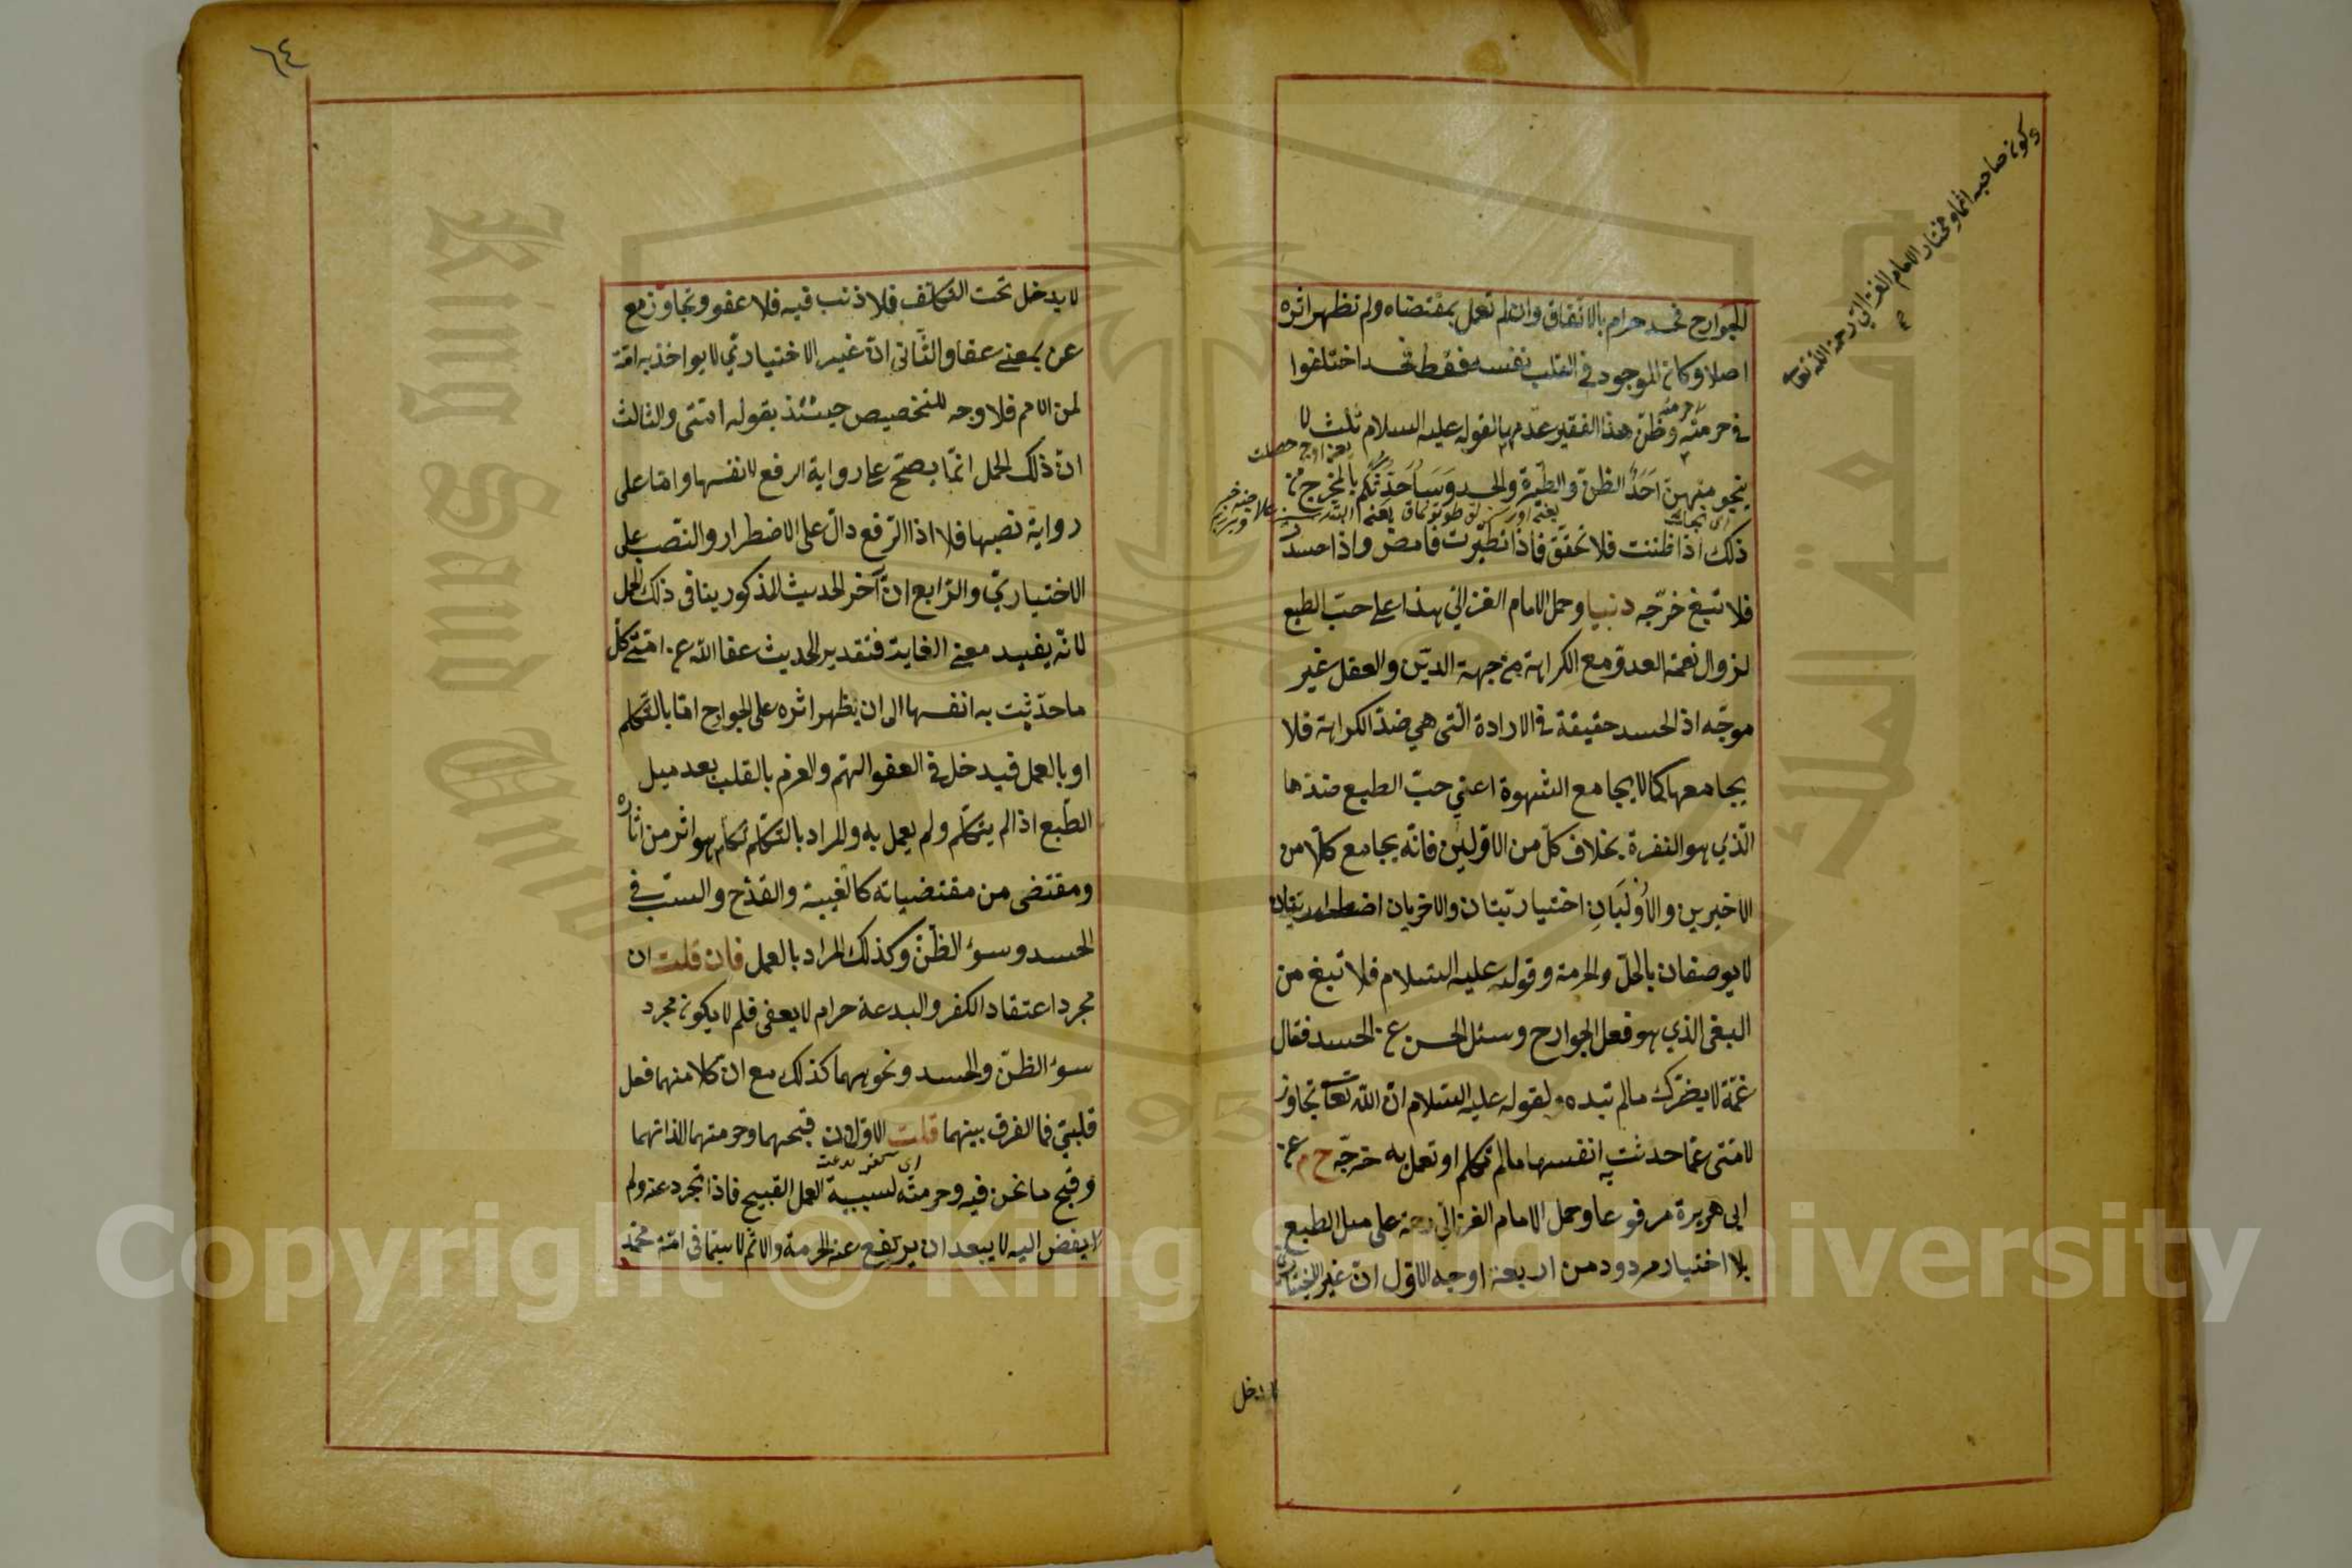 وكون صاحبه اثما ومختار الامام الغزالي رحمة الله تعا
الجوارح فحسد حرام بالاتفاق وان لم تعمل بمقتضاه ولم تظهر اثره
اصلا وكان الموجود في القلب نفسه فقط فحسد اختلفوا
في حرمته وظن هذا الفقير عدمها لقوله عليه السلام ثلث لا
ينجو منهن احد الظن والطيرة والحسد وساحدثكم بالمخرج من
ذلك اذا ظننت فلا تحقق فاذا تطيرت فامض واذا حسدت
فلا تبغ خرجه دنيا وحمل الامام الغزالي هذا على حب الطبع
لزوال نعمة العدو مع الكراهة من جهة الدين والعقل غير
موجه اذ الحسد حقيقة في الارادة التى هي ضد الكراهة فلا
يجامعها كما لا يجامع الشهوة اعني حب الطبع ضدها
الذي هو النفرة بخلاف كل من الاولين فانه يجامع كلا من
الاخيرين والاوليان اختياريتان والاخريان اضطراريتان
لا يوصفان بالحل والحرمة وقوله عليه السلام فلا تبغ من
البغى الذي هو فعل الجوارح وسئل الحسن عن الحسد فقال
غمة لا يضرك مالم تبده ولقوله عليه السلام ان الله تعا تجاوز
لامتى عما حدثت به انفسها مالم تكلم او تعمل به خرجه خ م عن
ابى هريرة مرفوعا وحمل الامام الغزالي رحمة على ميل الطبع
بلا اختيار مردود من اربعة اوجه الاول ان غير الاختيارى
لا يدخل
٦٤
لا يدخل تحت التكليف فلا ذنب فيه فلا عفو وتجاوز مع
عن بمعنى عفا والثاني ان غير الاختياري لا يواخذ به امة
من الامم فلا وجه للتخصيص حينئذ بقوله امتى والثالث
ان ذلك الحمل انما يصح على رواية الرفع لانفسها واما على
رواية نصبها فلا اذ الرفع دال على الاضطرار والنصب على
الاختياري والرابع ان آخر الحديث المذكور ينافى ذلك الحمل
لانه يفيد معنى الغاية فتقدير الحديث عفا الله عن امتى كل
ما حدثت به انفسها الى ان يظهر اثره على الجوارح اما بالتكلم
او بالعمل فيدخل في العفو الهم والعزم بالقلب بعد ميل
الطبع اذا لم يتكلم ولم يعمل به والمراد بالتكلم تكلم هو اثر من اثاره
ومقتضى من مقتضياته كالغيبة والقدح والسب في
الحسد وسوء الظن وكذلك المراد بالعمل فان قلت ان
مجرد اعتقاد الكفر والبدعة حرام لا يعفى فلم لا يكون مجرد
سوء الظن والحسد ونحوهما كذلك مع ان كلا منهما فعل
قلبي فما الفرق بينهما قلت الاولان قبحهما وحرمتهما لذاتهما
اى كفر بدعت
وقبح ما نحن فيه وحرمته لسببية العمل القبيح فاذا تجرد عنه ولم
يفض اليه لا يبعد ان يرتفع عنه الحرمة والاثم لا سيما في امة محمد